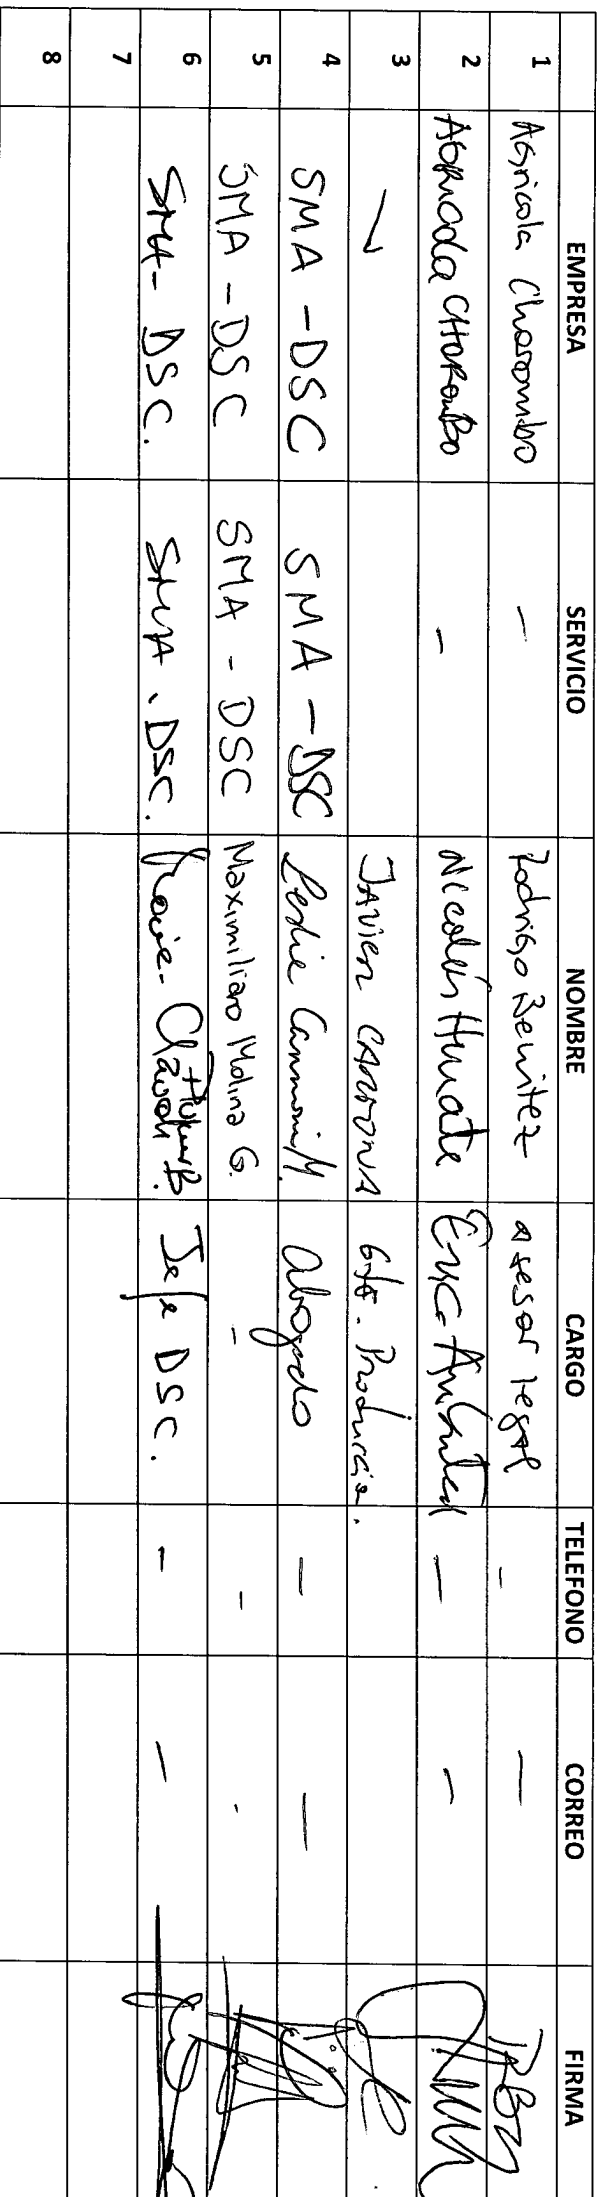 EMPRESA SERVICIO NOMBRE CARGO TELEFONO CORREO FIRMA
1 Agricola Chorombo - Rodrigo Benitez asesor legal - -
2 Agricola Chorombo - Nicolás - -
3 Javier Cardona Gte. Producción.
4 SMA - DSC SMA - DSC Leslie Cannoni M. abogado - -
5 SMA - DSC SMA - DSC Maximiliano Molina G. - - -
6 SMA - DSC. SMA. DSC. Jefe DSC. - -
7
8